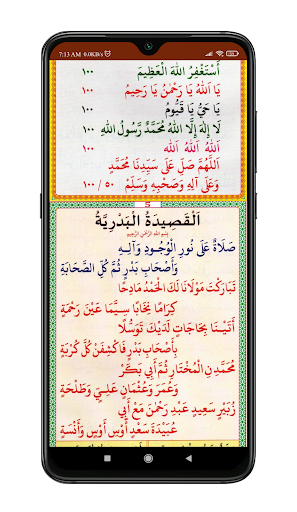 7:13 AM 0.0KB/s
أَسْتَغْفِرُ اللهَ الْعَظِيمَ ١٠٠
يَا اَللهُ يَا رَحْمٰنُ يَا رَحِيمُ ١٠٠
يَا حَيُّ يَا قَيُّومُ ١٠٠
لَا إِلٰهَ إِلَّا اللهُ مُحَمَّدٌ رَسُولُ اللهِ ١٠٠
اَللهُ اَللهُ اَللهُ ١٠٠
اَللّٰهُمَّ صَلِّ عَلَى سَيِّدِنَا مُحَمَّدٍ
وَعَلَى آلِهِ وَصَحْبِهِ وَسَلِّمْ ٥٠ / ١٠٠
5
اَلْقَصِيدَةُ الْبَدْرِيَّةُ
بِسْمِ اللهِ الرَّحْمٰنِ الرَّحِيمِ
صَلَاةٌ عَلَى نُورِ الْوُجُودِ وَآلِهِ
وَأَصْحَابِ بَدْرٍ ثُمَّ كُلِّ الصَّحَابَةِ
تَبَارَكْتَ مَوْلَانَا لَكَ الْحَمْدُ مَادِحًا
كِرَامًا نِجَابًا سِيَّمَا عَيْنَ رَحْمَةٍ
أَتَيْنَا بِحَاجَاتٍ لَدَيْكَ تَوَسُّلًا
بِأَصْحَابِ بَدْرٍ فَاكْشِفَنْ كُلَّ كُرْبَةٍ
مُحَمَّدِنِ الْمُخْتَارِ ثُمَّ أَبِي بَكْرٍ
وَعُمَرَ وَعُثْمَانَ عَلِيٍّ وَطَلْحَةٍ
زُبَيْرٍ سَعِيدٍ عَبْدِ رَحْمٰنَ مَعْ أَبِي
عُبَيْدَةَ سَعْدٍ أَوْسِ أَوْسٍ وَأَنْسَةٍ